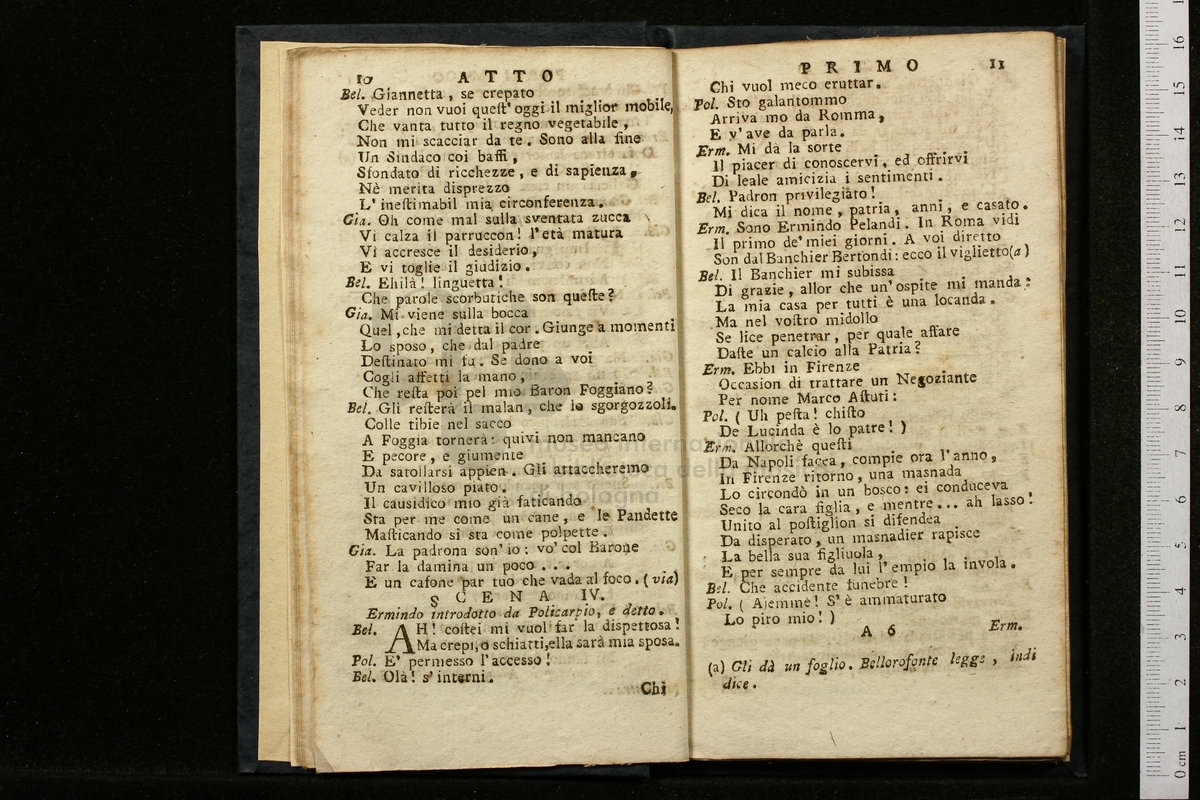 10 ATTO
Bel. Giannetta, se crepato
Veder non vuoi quest' oggi il miglior mobile,
Che vanta tutto il regno vegetabile,
Non mi scacciar da te. Sono alla fine
Un Sindaco coi baffi,
Sfondato di ricchezze, e di sapienza,
Nè merita disprezzo
L' inestimabil mia circonferenza.
Gia. Oh come mal sulla sventata zucca
Vi calza il parruccon! l'età matura
Vi accresce il desiderio,
E vi toglie il giudizio.
Bel. Ehilà! linguetta!
Che parole scorbutiche son queste?
Gia. Mi viene sulla bocca
Quel, che mi detta il cor. Giunge a momenti
Lo sposo, che dal padre
Destinato mi fu. Se dono a voi
Cogli affetti la mano,
Che resta poi pel mio Baron Foggiano?
Bel. Gli resterà il malan, che lo sgorgozzoli.
Colle tibie nel sacco
A Foggia tornerà: quivi non mancano
E pecore, e giumente
Da satollarsi appien. Gli attaccheremo
Un cavilloso piato.
Il causidico mio già faticando
Sta per me come un cane, e le Pandette
Masticando si sta come polpette.
Gia. La padrona son' io: vo' col Barone
Far la damina un poco...
E un cafone par tuo che vada al foco. (via)
SCENA IV.
Ermindo introdotto da Policarpio, e detto.
Bel. AH! costei mi vuol far la dispettosa!
Ma crepi, o schiatti, ella sarà mia sposa.
Pol. E' permesso l'accesso!
Bel. Olà! s' interni.
Chi
PRIMO 11
Chi vuol meco eruttar.
Pol. Sto galantommo
Arriva mo da Romma,
E v' ave da parla.
Erm. Mi dà la sorte
Il piacer di conoscervi, ed offrirvi
Di leale amicizia i sentimenti.
Bel. Padron privilegiato!
Mi dica il nome, patria, anni, e casato.
Erm. Sono Ermindo Pelandi. In Roma vidi
Il primo de' miei giorni. A voi diretto
Son dal Banchier Bertondi: ecco il viglietto(a)
Bel. Il Banchier mi subissa
Di grazie, allor che un' ospite mi manda:
La mia casa per tutti è una locanda.
Ma nel vostro midollo
Se lice penetrar, per quale affare
Daste un calcio alla Patria?
Erm. Ebbi in Firenze
Occasion di trattare un Negoziante
Per nome Marco Astuti:
Pol. (Uh pesta! chisto
De Lucinda è lo patre!)
Erm. Allorchè questi
Da Napoli facea, compie ora l'anno,
In Firenze ritorno, una masnada
Lo circondò in un bosco: ei conduceva
Seco la cara figlia, e mentre... ah lasso!
Unito al postiglion si difendea
Da disperato, un masnadier rapisce
La bella sua figliuola,
E per sempre da lui l' empio la invola.
Bel. Che accidente funebre!
Pol. (Ajemmè! S' è ammaturato
Lo piro mio!)
A 6 Erm.
(a) Gli dà un foglio. Bellorofonte legge, indi
dice.